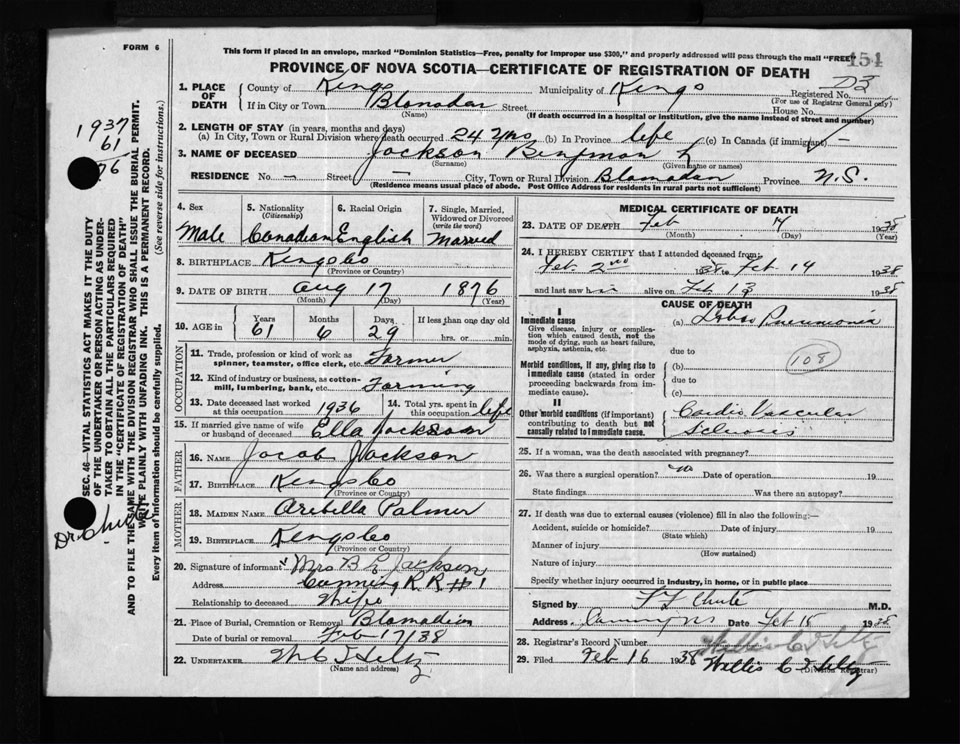 FORM 6
This form if placed in an envelope, marked "Dominion Statistics—Free, penalty for improper use $300," and properly addressed will pass through the mail "FREE"
454
PROVINCE OF NOVA SCOTIA—CERTIFICATE OF REGISTRATION OF DEATH
1. PLACE OF DEATH County of Kings Municipality of Kings Registered No. D3
(For use of Registrar General only)
If in City or Town Blomadan Street House No.
(Name) (If death occurred in a hospital or institution, give the name instead of street and number)
2. LENGTH OF STAY (in years, months and days)
(a) In City, Town or Rural Division where death occurred 24 yrs (b) In Province life (c) In Canada (if immigrant) —
3. NAME OF DECEASED Jackson Benjman L
(Surname) (Given name or names)
RESIDENCE No. — Street — City, Town or Rural Division Blomadan Province N.S.
(Residence means usual place of abode. Post Office Address for residents in rural parts not sufficient)
1937
61
76
SEC. 46—VITAL STATISTICS ACT MAKES IT THE DUTY
OF THE UNDERTAKER OR PERSON ACTING AS UNDER-
TAKER TO OBTAIN ALL THE PARTICULARS REQUIRED
IN THE "CERTIFICATE OF REGISTRATION OF DEATH"
AND TO FILE THE SAME WITH THE DIVISION REGISTRAR WHO SHALL ISSUE THE BURIAL PERMIT.
WRITE PLAINLY WITH UNFADING INK. THIS IS A PERMANENT RECORD.
Every item of information should be carefully supplied. (See reverse side for instructions.)
Dr. Chute
4. Sex 5. Nationality 6. Racial Origin 7. Single, Married,
(Citizenship) Widowed or Divorced
(write the word)
Male Canadian English Married
8. BIRTHPLACE Kings Co
(Province or Country)
9. DATE OF BIRTH Aug 17 1876
(Month) (Day) (Year)
10. AGE in Years Months Days If less than one day old
61 6 29 hrs. or min.
OCCUPATION
11. Trade, profession or kind of work as
spinner, teamster, office clerk, etc. Farmer
12. Kind of industry or business, as cotton-
mill, lumbering, bank, etc. Farming
13. Date deceased last worked at this occupation 1936 14. Total yrs. spent in this occupation life
15. If married give name of wife
or husband of deceased Ella Jackson
FATHER
16. NAME Jacob Jackson
17. BIRTHPLACE Kings Co
(Province or Country)
MOTHER
18. MAIDEN NAME Aribella Palmer
19. BIRTHPLACE Kings Co
(Province or Country)
20. Signature of informant Mrs B L Jackson
Address Canning R.R. #1
Relationship to deceased Wife
21. Place of Burial, Cremation or Removal Blomadion
Date of burial or removal Feb 17/38
22. UNDERTAKER
(Name and address)
MEDICAL CERTIFICATE OF DEATH
23. DATE OF DEATH Feb 14 1938
(Month) (Day) (Year)
24. I HEREBY CERTIFY that I attended deceased from:
Feb 2nd 1938 to Feb 14 1938
and last saw him alive on Feb 13 1938
CAUSE OF DEATH
I
Immediate cause (a) Lobar Pneumonia
Give disease, injury or complica-
tion which caused death, not the
mode of dying, such as heart failure,
asphyxia, asthenia, etc. due to
108
Morbid conditions, if any, giving rise to (b)
immediate cause (stated in order due to
proceeding backwards from im-
mediate cause). (c)
II
Other morbid conditions (if important) Cardio Vascular
contributing to death but not
causally related to immediate cause. Sclerosis
25. If a woman, was the death associated with pregnancy?
26. Was there a surgical operation? no Date of operation 19
State findings Was there an autopsy?
27. If death was due to external causes (violence) fill in also the following:—
Accident, suicide or homicide? Date of injury 19
(State which)
Manner of injury
(How sustained)
Nature of injury
Specify whether injury occurred in industry, in home, or in public place
Signed by F F Chute M.D.
Address Canning NS Date Feb 15 1938
28. Registrar's Record Number
29. Filed Feb 16 1938
(Division Registrar)